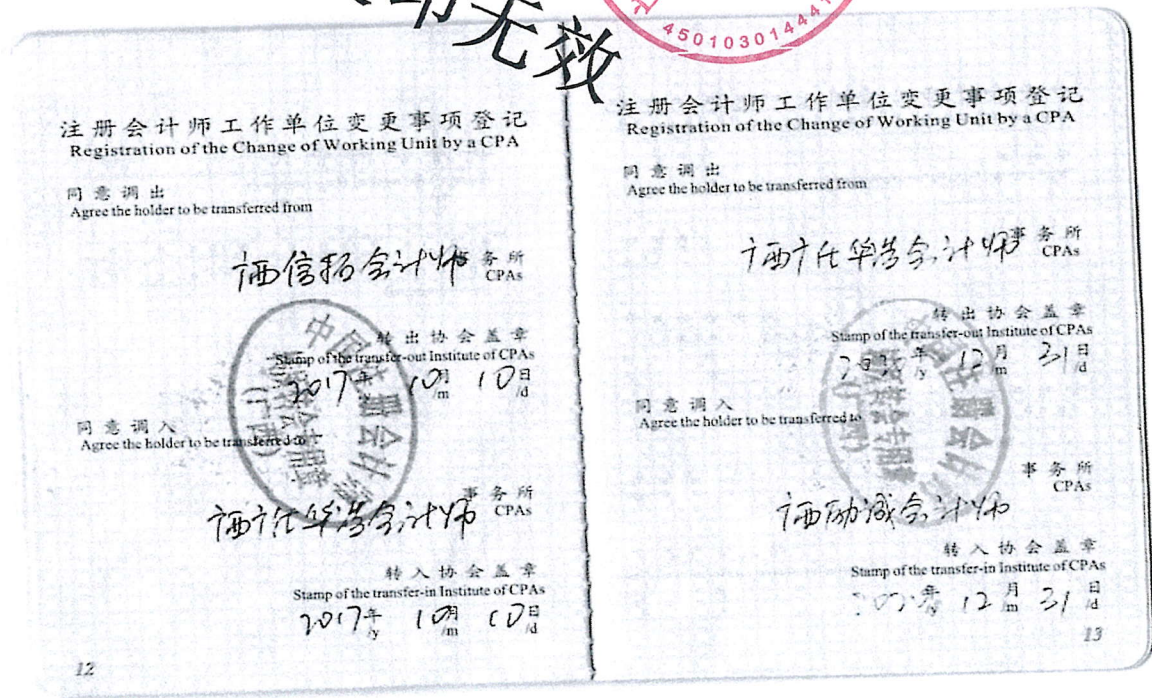 印无效
4501030144410
注册会计师工作单位变更事项登记
Registration of the Change of Working Unit by a CPA
同意调出
Agree the holder to be transferred from
广西信拓会计师事务所
CPAs
转出协会盖章
Stamp of the transfer-out Institute of CPAs
2017年 10月 10日
/y /m /d
同意调入
Agree the holder to be transferred to
事务所
CPAs
转入协会盖章
Stamp of the transfer-in Institute of CPAs
2017年 10月 10日
/y /m /d
12
注册会计师工作单位变更事项登记
Registration of the Change of Working Unit by a CPA
同意调出
Agree the holder to be transferred from
事务所
CPAs
转出协会盖章
Stamp of the transfer-out Institute of CPAs
年 12月 31日
/y /m /d
同意调入
Agree the holder to be transferred to
事务所
CPAs
广西励诚会计师
转入协会盖章
Stamp of the transfer-in Institute of CPAs
年 12月 31日
/y /m /d
13